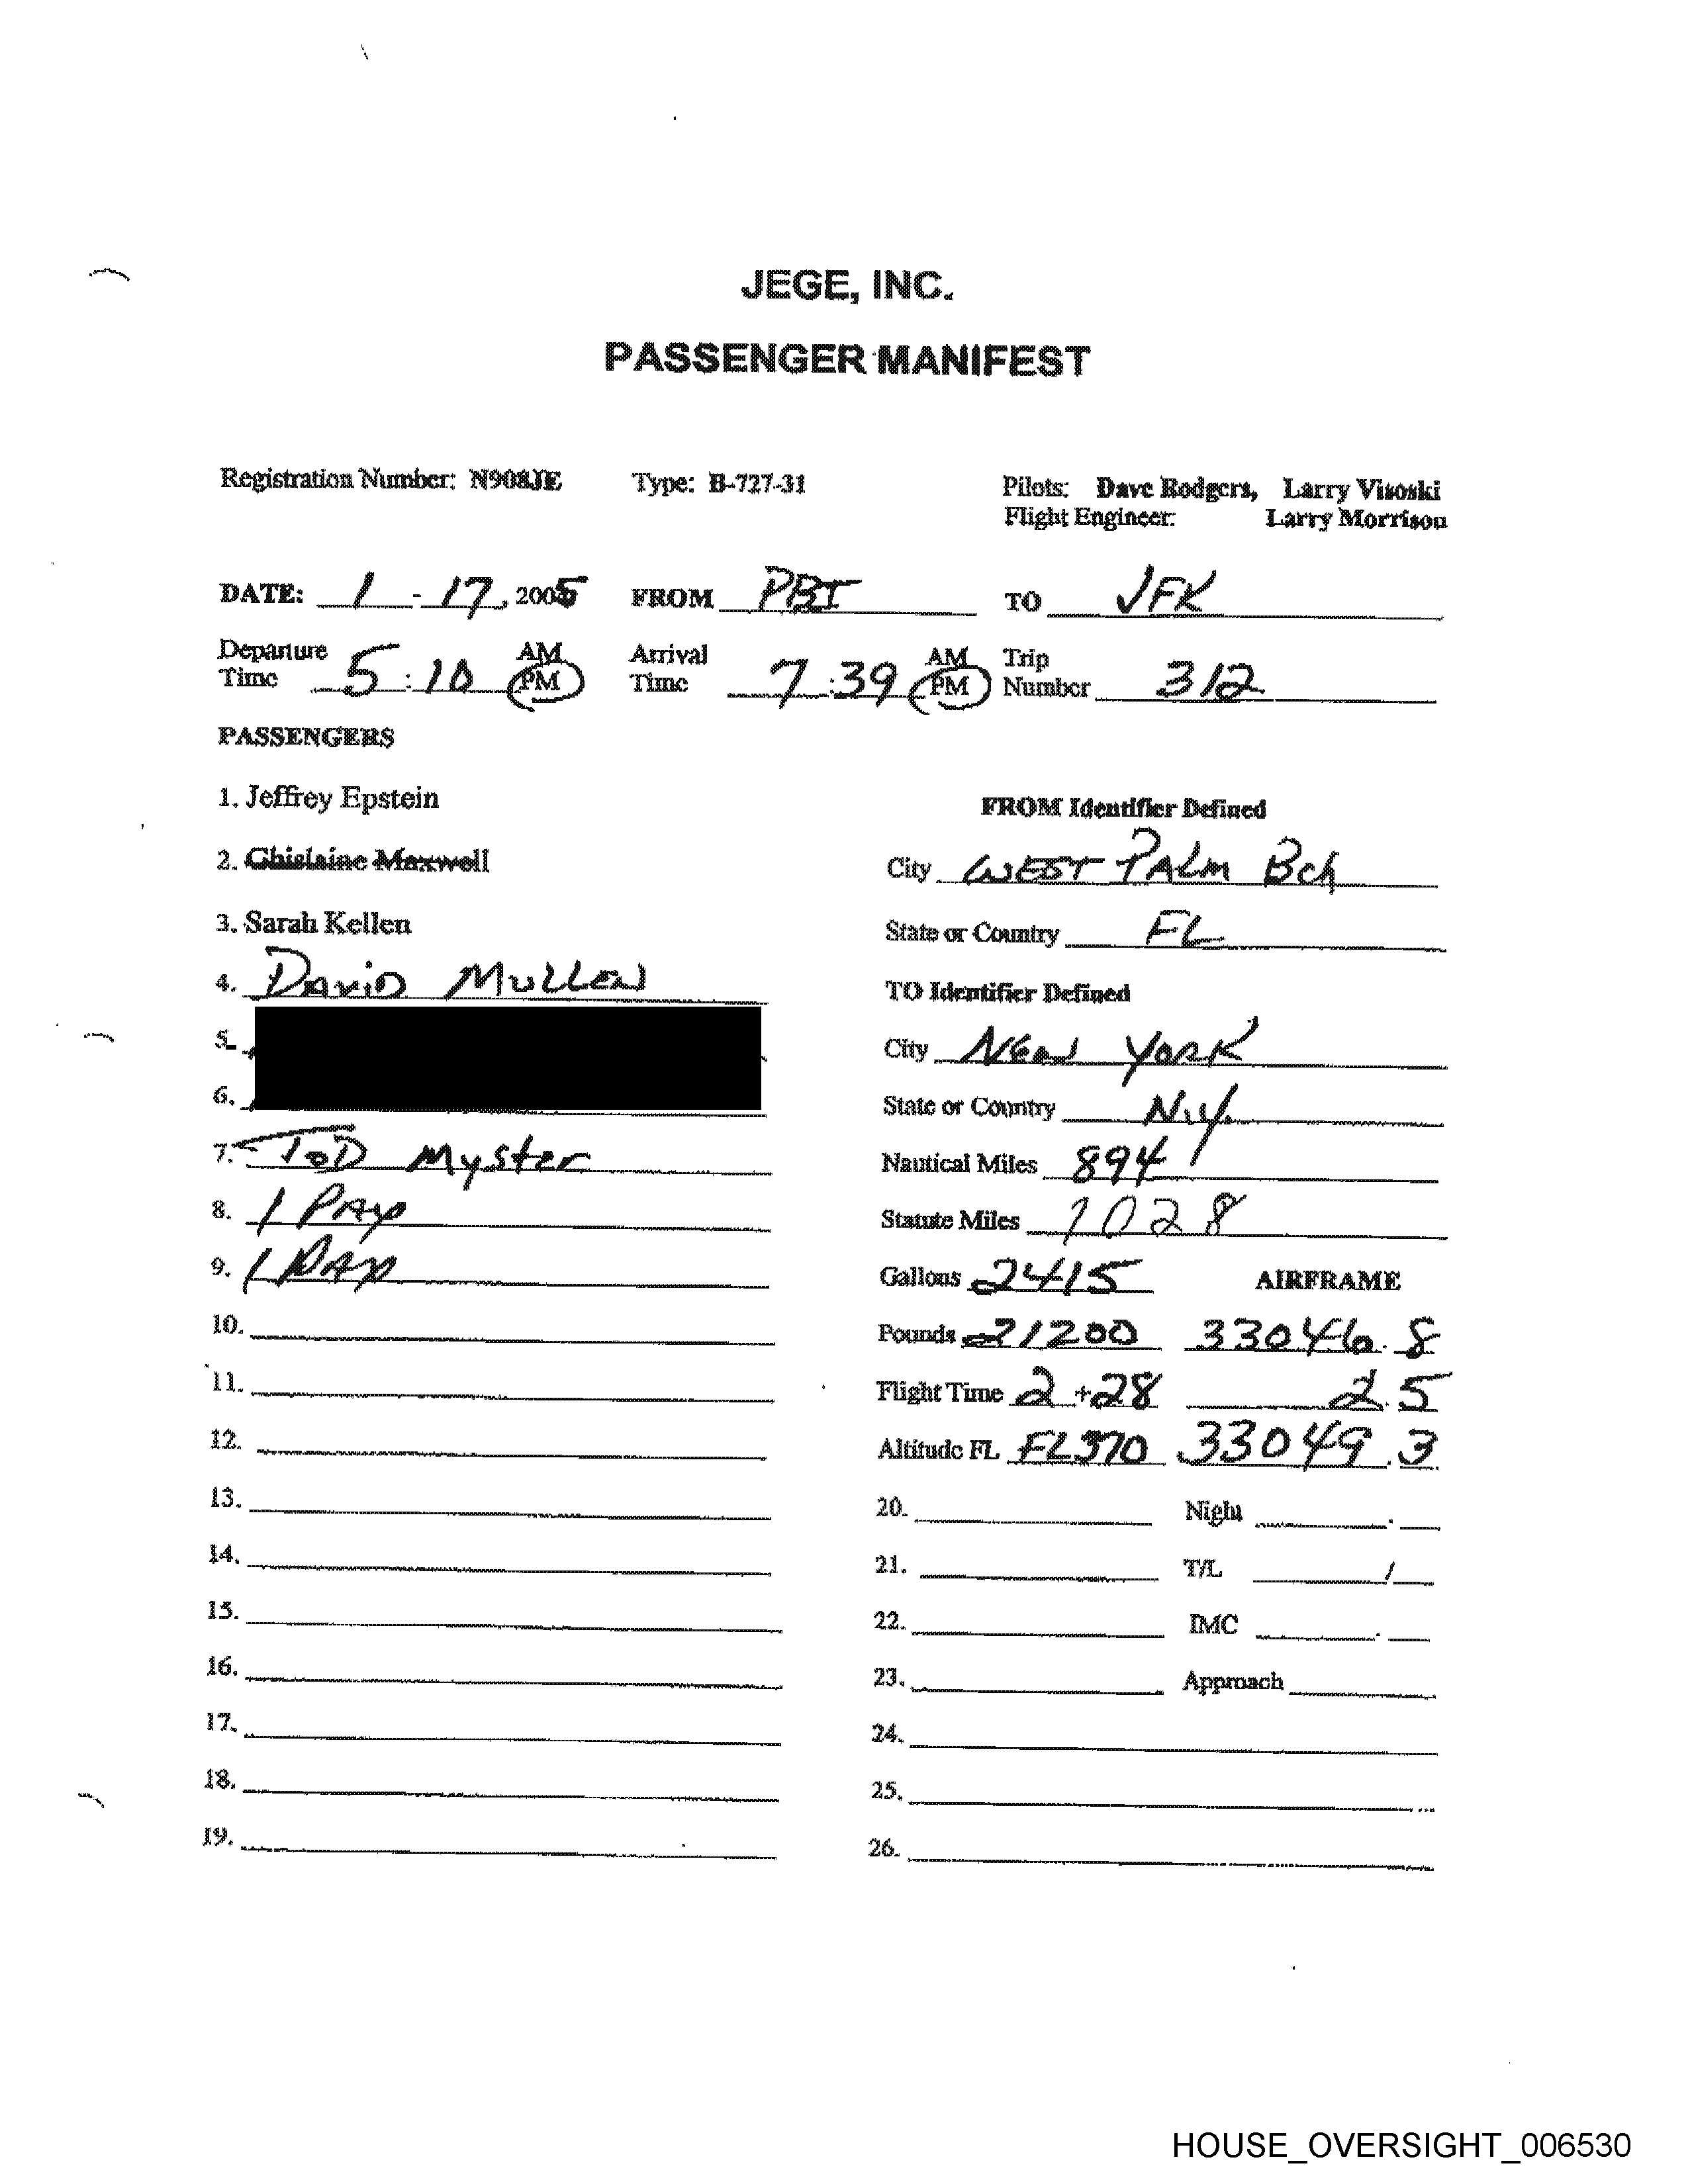 JEGE, INC.
PASSENGER MANIFEST
Registration Number: N908JE Type: B-727-31 Pilots: Dave Rodgers, Larry Visoski
Flight Engineer: Larry Morrison
DATE: 1 - 17, 2005 FROM PBI TO JFK
Departure Time 5:10 AM PM Arrival Time 7:39 AM PM Trip Number 312
PASSENGERS
1. Jeffrey Epstein
2. Ghislaine Maxwell
3. Sarah Kellen
4. DAViD MULLEN
5.
6.
7. ToD Myster
8. 1 PAX
9. 1 PAX
10.
11.
12.
13.
14.
15.
16.
17.
18.
19.
FROM Identifier Defined
City WEST PALM Bch
State or Country FL
TO Identifier Defined
City NEW YORK
State or Country N.Y.
Nautical Miles 894
Statute Miles 1028
Gallons 2415 AIRFRAME
Pounds 21200 33046.8
Flight Time 2+28 2.5
Altitude FL FL370 33049.3
20. Night
21. T/L /
22. IMC
23. Approach
24.
25.
26.
HOUSE_OVERSIGHT_006530